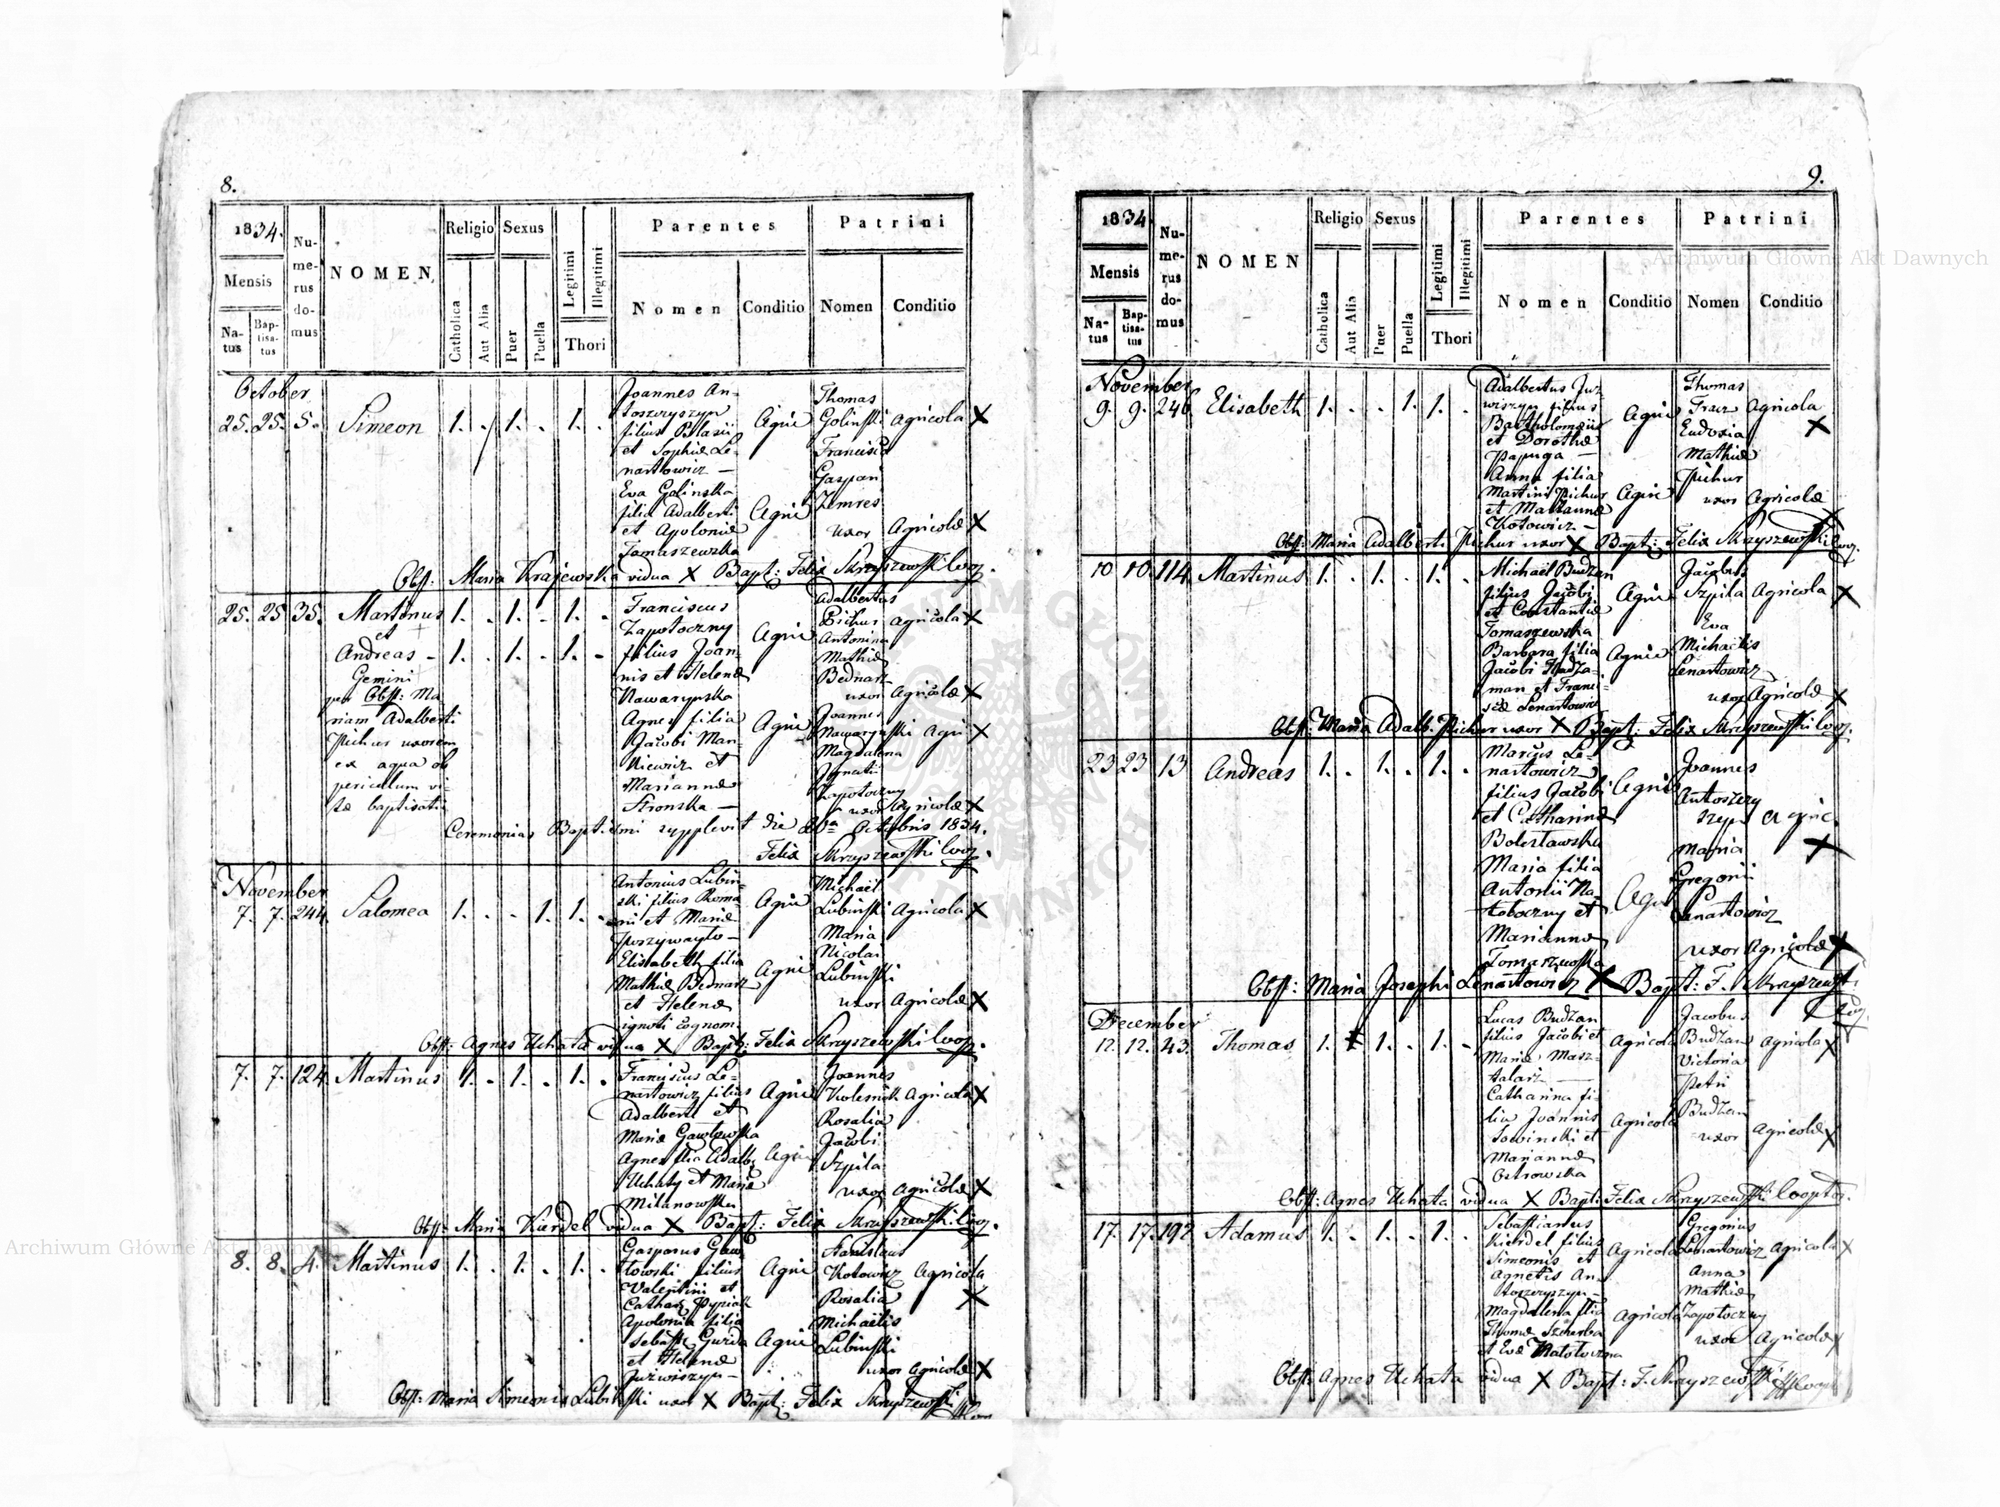 8.
1834.
Mensis
Na-
tus
Bap-
tisa-
tus
Nu-
me-
rus
do-
mus
NOMEN
Religio
Catholica
Aut Alia
Sexus
Puer
Puella
Legitimi
Illegitimi
Thori
Parentes
Nomen
Conditio
Patrini
Nomen
Conditio
October
25. 25. 5.
Simeon
1. . 1. . 1. .
Joannes An-
toszczyszyn
filius Blasii
et Sophiæ Le-
nartowicz —
Eva Golinska
filia Adalberti
et Apoloniæ
Tomaszewska
Agri
Agri
Thomas
Golinski Agricola X
Francisca
Gaspari
Zemres
uxor Agricolæ X
Obst: Maria Krajewska vidua X Bapt: Felix Skrzyszewski Coop.
25. 25 35.
Martinus
et
Andreas —
Gemini
per Obst: Ma-
riam Adalberti
Pichur uxorem
ex aqua ob
periculum vi-
tæ baptisati
1. . 1. . 1. .
1. . 1. . 1. .
Franciscus
Zapotoczny
filius Joan-
nis et Helenæ
Nawarynska
Agnes filia
Jacobi Man-
kiewicz et
Mariannæ
Stronska —
Agri
Agri
Adalbertus
Pichur Agricola X
Antonina
Mathiæ
Bednarz
uxor Agricolæ X
Joannes
Nawarynski Agri X
Magdalena
Ignatii
Zapotoczny
uxor Agricolæ X
Ceremonias Baptismi supplevit die 26ta Octobris 1834.
Felix Skrzyszewski Coop.
November
7. 7. 244.
Salomea
1. . . 1. 1. .
Antonius Lubin-
ski filius Roma
ni et Mariæ
Elisabeth filia
Mathiæ Bednarz
et Helenæ
ignoti cognom:
Agri
Agri
Michaël
Lubinski Agricola X
Maria
Nicolai
Lubinski
uxor Agricolæ X
Obst: Agnes Uchata vidua X Bapt: Felix Skrzyszewski Coop.
7. 7. 124.
Martinus
1. . 1. . 1. .
Franciscus Le-
nartowicz filius
Adalberti et
Mariæ Gawłowska
Agnes filia Adalb:
Uchaty et Mariæ
Milanowska
Agri
Agri
Joannes
Kolesnik Agricola X
Rosalia
Jacobi
Szpila
uxor Agricolæ X
Obst: Maria Kierdel vidua X Bapt: Felix Skrzyszewski Coop.
8. 8. 4.
Martinus
1. . 1. . 1. .
Gasparus Gaw-
łowski filius
Valentini et
Cathar: Pyniak
Apolonia filia
Sebast: Gwizda
et Helenæ
Juzwiszyn —
Agri
Agri
Stanislaus
Kotowicz Agricola
Rosalia X
Michaëlis
Lubinski
uxor Agricolæ X
Obst: Maria Simeonis Lubinski uxor X Bapt: Felix Skrzyszewski
9.
1834
Mensis
Na-
tus
Bap-
tisa-
tus
Nu-
me-
rus
do-
mus
NOMEN
Religio
Catholica
Aut Alia
Sexus
Puer
Puella
Legitimi
Illegitimi
Thori
Parentes
Nomen
Conditio
Patrini
Nomen
Conditio
November
9. 9. 246.
Elisabeth
1. . . 1. 1. .
Adalbertus Juz-
wiszyn filius
Bartholomæi
et Dorothæ
Papuga —
Anna filia
Martini Pichur
et Mariannæ
Kotowicz —
Agri
Agri
Thomas
Fracz Agricola
X
Eudoxia
Mathiæ
Pichur
uxor Agricolæ
X
Obst: Maria Adalberti Pichur uxor X Bapt: Felix Skrzyszewski Coop.
10 10. 114.
Martinus
1. . 1. . 1. .
Michaël Budzan
filius Jacobi
et Constantiæ
Tomaszewska
Barbara filia
Jacobi Hadza-
man et Franci-
scæ Lenartowicz
Agri
Agri
Jacobus
Szpila Agricola X
Eva
Michaëlis
Lenartowicz
uxor Agricolæ X
Obst: Maria Adalb: Pichur uxor X Bapt: Felix Skrzyszewski Coop.
23 23 13
Andreas
1. . 1. . 1. .
Marcus Le-
nartowicz
filius Jacobi
et Catharinæ
Bolestawska
Maria filia
Antonii Za-
potoczny et
Mariannæ
Tomaszewska
Agri
Agri
Joannes
Antoszczy
szyn Agric.
Maria X
Gregorii
Lenartowicz
uxor Agricolæ X
Obst: Maria Josephi Lenartowicz X Bapt: F. Skrzyszewski
Coop.
December
12. 12. 43.
Thomas
1. . 1. . 1. .
Lucas Budzan
filius Jacobi et
Mariæ Masz-
talarz —
Catharina fi-
lia Joannis
Sowinski et
Mariannæ
Ostrowska
Agricola
Agricola
Jacobus
Budzan Agricola X
Victoria
Petri
Budzan
uxor Agricolæ X
Obst: Agnes Uchata vidua X Bapt: Felix Skrzyszewski Cooptor.
17. 17. 192
Adamus
1. . 1. . 1. .
Sebastianus
Kierdel filius
Simeonis et
Agnetis An-
toszczyszyn —
Magdalena filia
Thomæ Szczerba
et Evæ
Agricola
Agricola
Gregorius
Lenartowicz Agricola X
Anna
Mathiæ
Zapotoczny
uxor Agricolæ X
Obst: Agnes Uchata vidua X Bapt: F. Skrzyszewski
Archiwum Główne Akt Dawnych
Archiwum Główne Akt Dawnych
ARCHIWUM GŁÓWNE AKT DAWNYCH